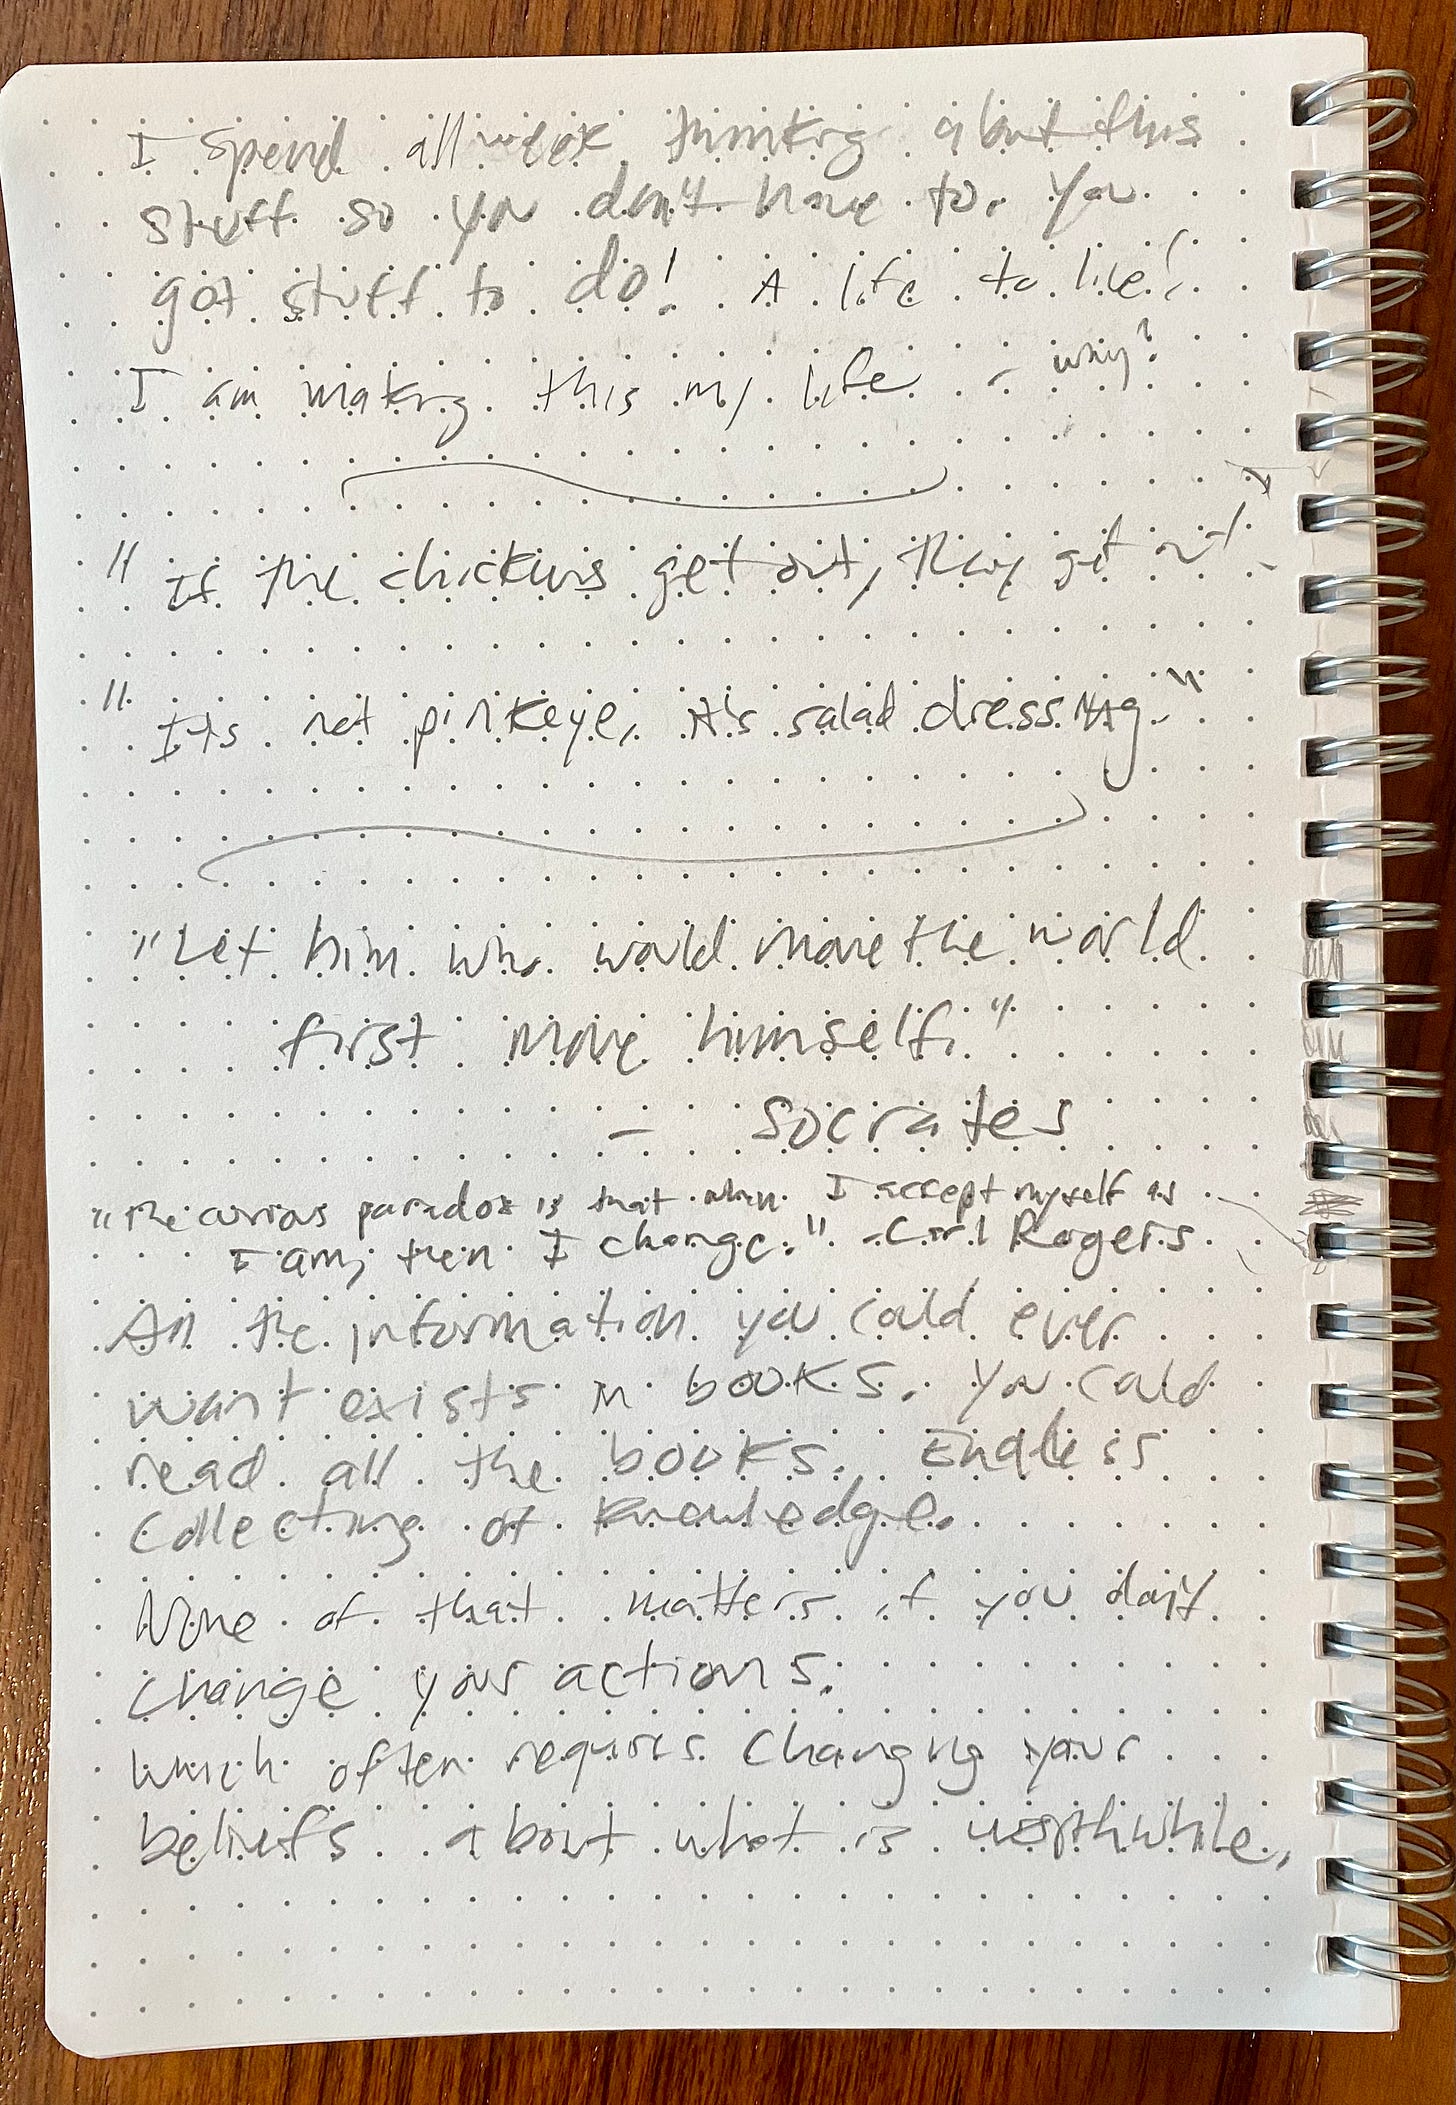 I spend all week thinking about this
stuff so you don't have to. You
got stuff to do! A life to live!
I am making this my life - why?
"If the chickens get out, they get out.
"It's not pinkeye, it's salad dressing."
"Let him who would move the world
first move himself."
- Socrates
"The curious paradox is that when I accept myself as
I am, then I change." - Carl Rogers
All the information you could ever
want exists in books. You could
read all the books. Endless
collecting of knowledge.
None of that matters if you don't
change your actions.
Which often requires changing your
beliefs about what is worthwhile.